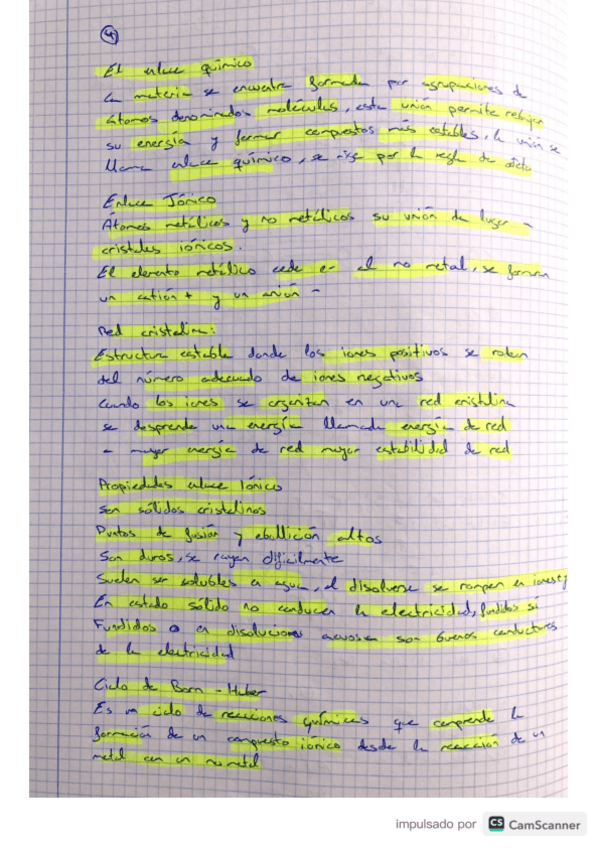 4
El enlace químico
La materia se encuentra formada por agrupaciones de
átomos denominados moléculas, esta unión permite rebajar
su energía y formar compuestos más estables, la unión se
llama enlace químico, se rige por la regla de octeto
Enlace Iónico
Átomos metálicos y no metálicos su unión da lugar a
cristales iónicos.
El elemento metálico cede e- al no metal, se forman
un catión + y un anión -
Red cristalina:
Estructura estable donde los iones positivos se rodean
del número adecuado de iones negativos
Cuando los iones se organizan en una red cristalina
se desprende una energía llamada energía de red
a mayor energía de red mayor estabilidad de red
Propiedades enlace Iónico
Son sólidos cristalinos
Puntos de fusión y ebullición altos
Son duros, se rayan difícilmente
Suelen ser solubles en agua, al disolverse se rompen en iones
En estado sólido no conducen la electricidad, fundidos sí
Fundidos o en disoluciones acuosas son buenos conductores
de la electricidad
Ciclo de Born - Haber
Es un ciclo de reacciones químicas que comprende la
formación de un compuesto iónico desde la reacción de un
metal con un no metal
impulsado por CS CamScanner